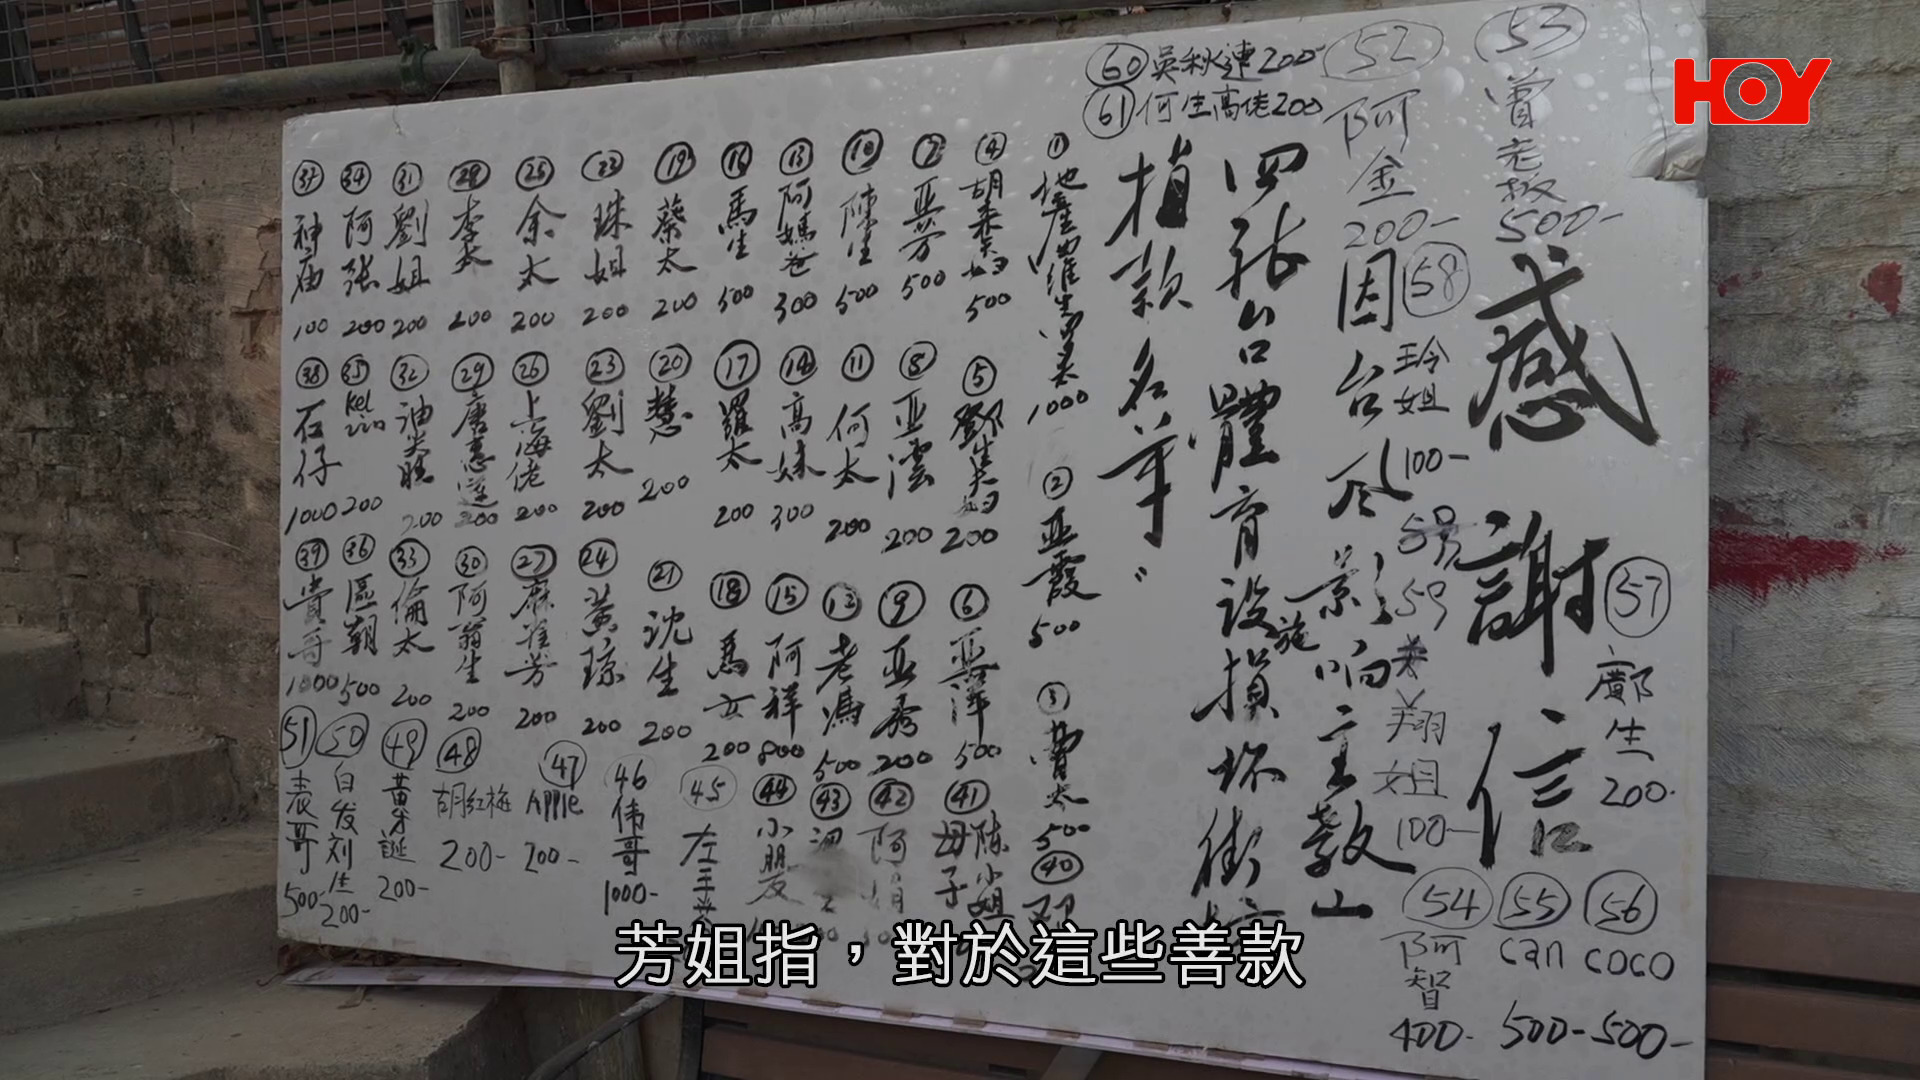 HOY
感謝信
因台风影响主教山
四號台體育設施損坏街坊
捐款名单〃
53 曾老板 500-
52 阿金 200-
58 玲姐 100-
59 翔姐 100-
57 鄺生 200-
54 阿智 400-
55 can 500-
56 COCO 500-
60 吳秋連 200-
61 何生高佬 200
1 1000
2 亚霞 500
3 曹太 500
40 邓
4 500
5 200
6 500
41 陈小姐 母子
7 500
8 亚澐 200
9 亚秀 200
42 阿
10 陳生 500
11 何太 200
12 老馮 500
43
13 阿媽爸 300
14 高妹 300
15 阿祥 800
44 小朋友
16 馬生 500
17 羅太 200
18 馬 200
45
19 蔡太 200
20 慧 200
21 沈生 200
46 伟哥 1000-
珠姐 200
23 劉太 200
24 黃琼 200
47 APPle 200-
25 余太 200
26 上海佬 200
27 麻雀芳 200
48 胡紅梅 200-
28 李太 200
29 唐 200
30 阿翁生 200
49 黃牙誕 200-
31 劉姐 200
32 200
33 倫太 200
50 白发刘生 200-
34 阿张 200
35 Kel 200
36 區朝 500
51 表哥 500-
37 神庙 100
38 石仔 1000
39 貴哥 1000
芳姐指，對於這些善款